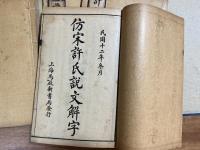 民國十二年冬月
仿宋許氏說文解字
上海馬啟新書局發行